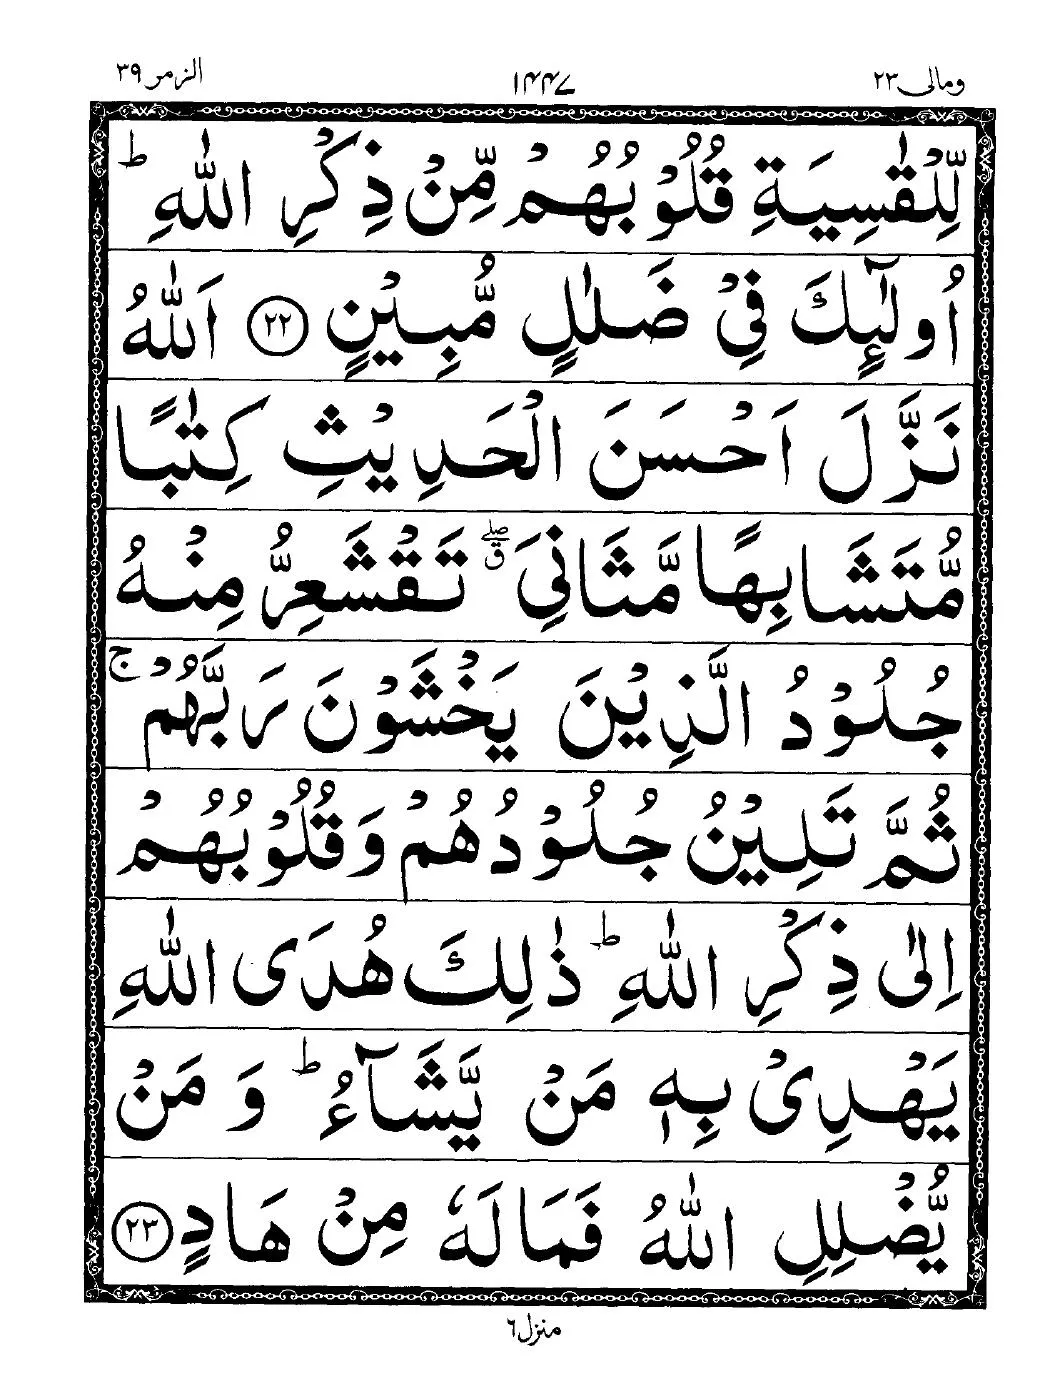 الزمر ٣٩ ١٤٤٧ ومالی ٢٣
لِّلْقٰسِيَةِ قُلُوْبُهُمْ مِّنْ ذِكْرِ اللّٰهِ ؕ
اُولٰٓئِكَ فِيْ ضَلٰلٍ مُّبِيْنٍ ٢٢ اَللّٰهُ
نَزَّلَ اَحْسَنَ الْحَدِيْثِ كِتٰبًا
مُّتَشَابِهًا مَّثَانِيَ ۖق تَقْشَعِرُّ مِنْهُ
جُلُوْدُ الَّذِيْنَ يَخْشَوْنَ رَبَّهُمْ ۚ
ثُمَّ تَلِيْنُ جُلُوْدُهُمْ وَقُلُوْبُهُمْ
اِلٰى ذِكْرِ اللّٰهِ ؕ ذٰلِكَ هُدَى اللّٰهِ
يَهْدِيْ بِهٖ مَنْ يَّشَآءُ ؕ وَمَنْ
يُّضْلِلِ اللّٰهُ فَمَا لَهٗ مِنْ هَادٍ ٢٣
منزل ٦